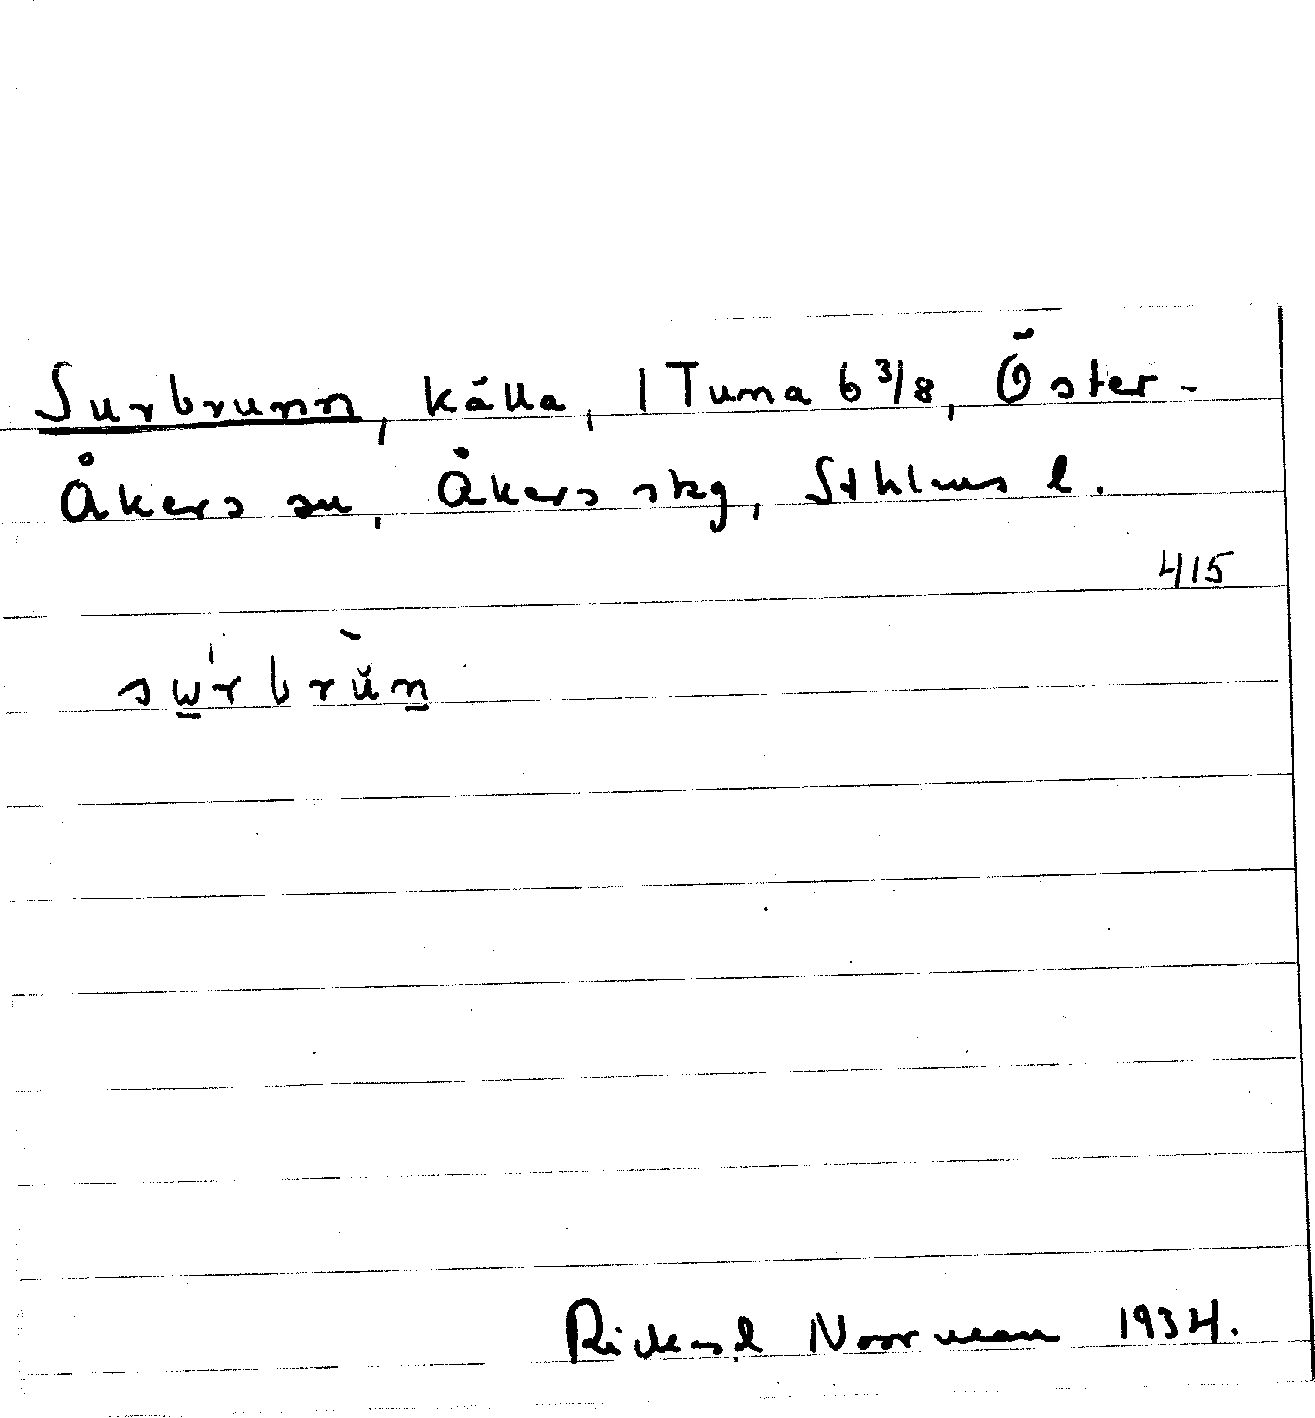 Surbrunn, källa, 1 Tuma 6 3/8, Öster-
Åkers sn, Åkers skg, Sthlms l.
415
sw̲'rbrŭn̲
Rickard Noorman 1934.